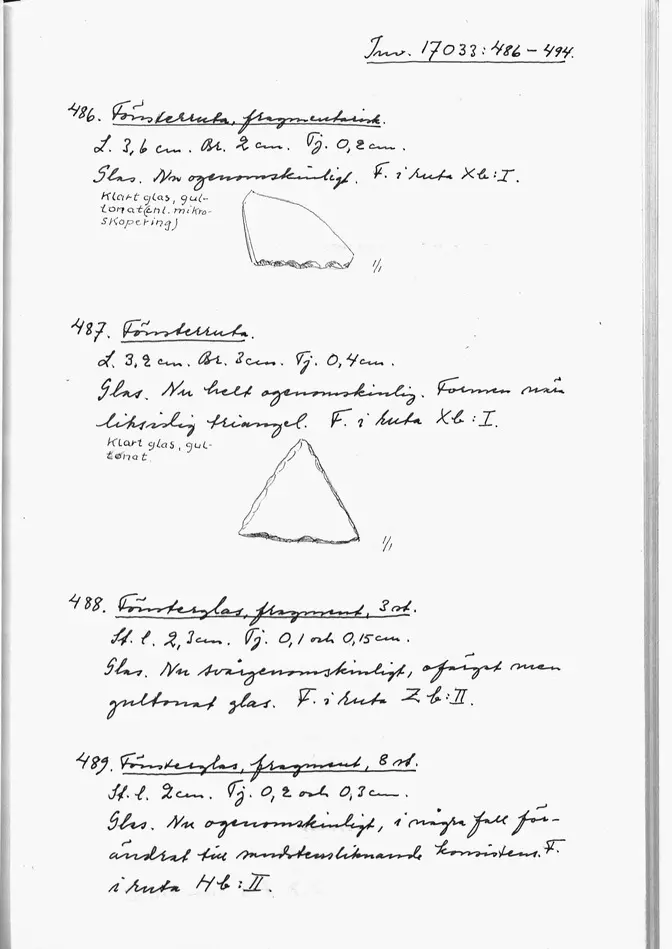 Inv. 17033:486-494.
486. Fönsterruta, fragmentarisk.
L. 3,6 cm. Br. 2 cm. Tj. 0,2 cm.
Glas. Nu ogenomskinligt. F. i ruta Xb:I.
Klart glas, gul-
tonat (enl. mikro-
skopering)
1/1
487. Fönsterruta.
L. 3,2 cm. Br. 3 cm. Tj. 0,4 cm.
Glas. Nu helt ogenomskinlig. Formen när
liksidig triangel. F. i ruta Xb:I.
Klart glas, gul-
tonat.
1/1
488. Fönsterglas, fragment, 3 st.
St. l. 2,3 cm. Tj. 0,1 och 0,15 cm.
Glas. Nu svårgenomskinligt, ofärgat men
gultonat glas. F. i ruta Zb:II.
489. Fönsterglas, fragment, 8 st.
St. l. 2 cm. Tj. 0,2 och 0,3 cm.
Glas. Nu ogenomskinligt, i några fall för-
ändrat till sandstensliknande konsistens. F.
i ruta Hb:II.